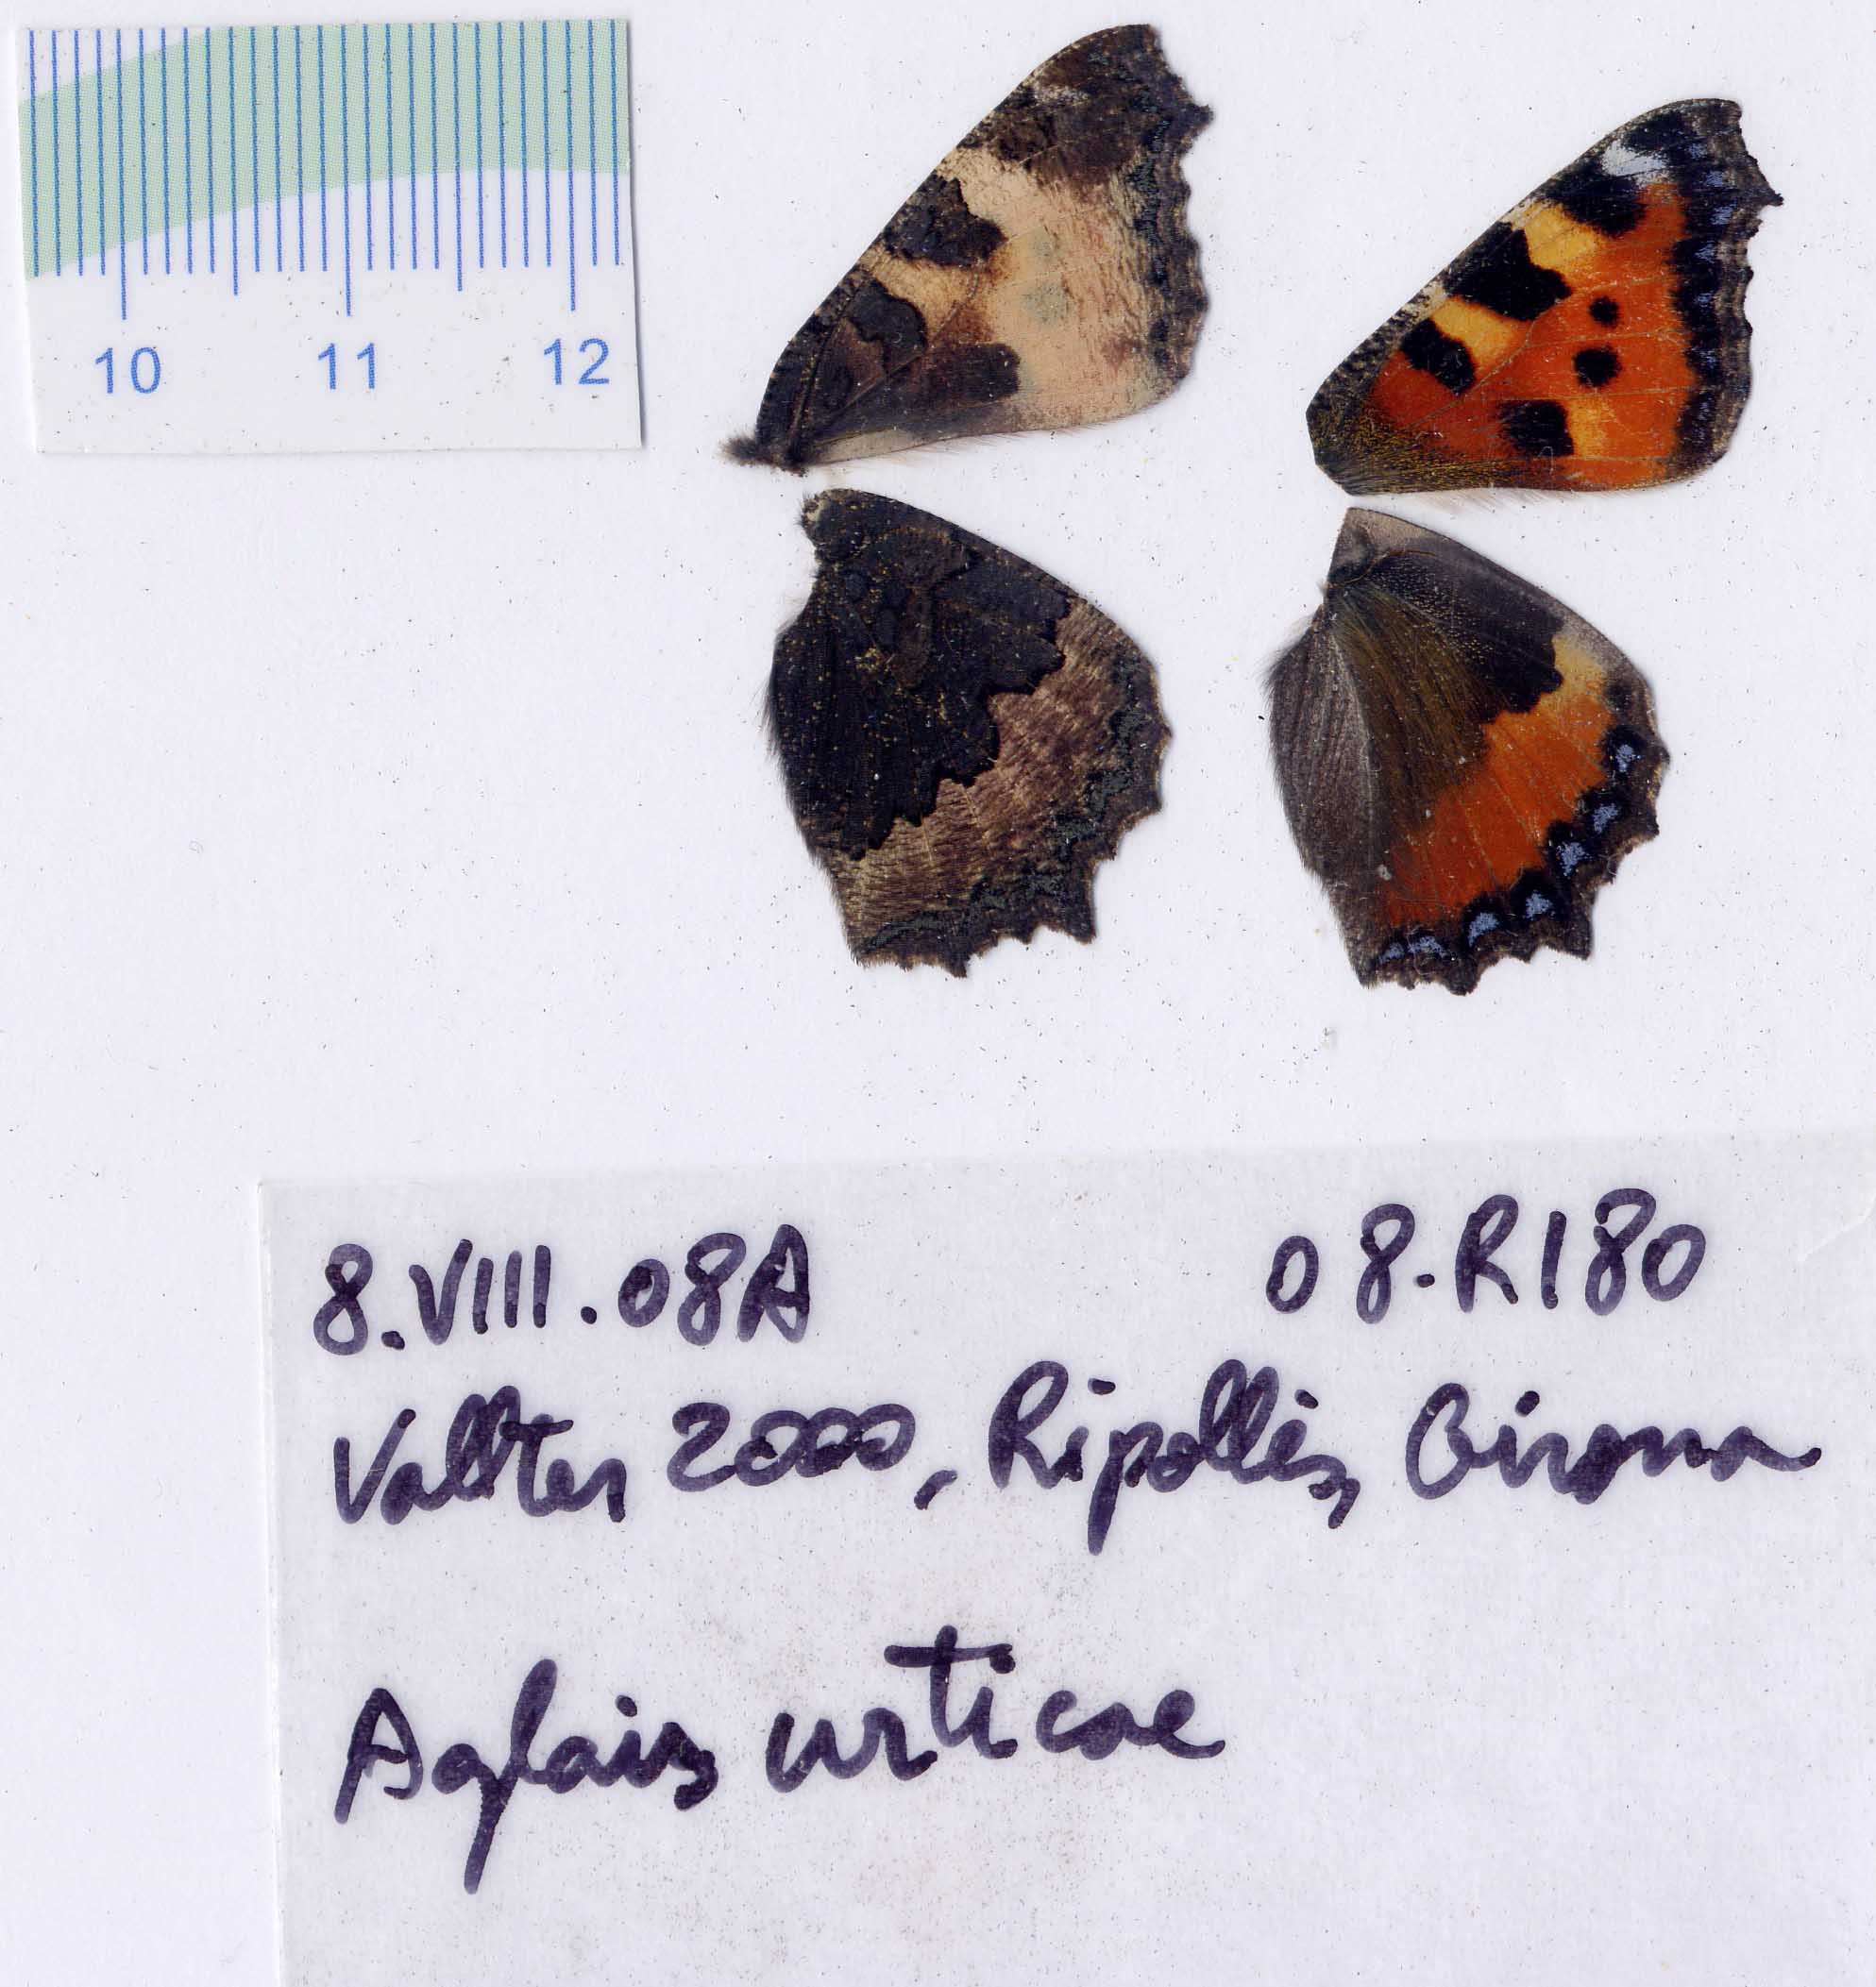 10 11 12
8.VIII.08A 08.R180
Vallter 2000, Ripollès, Girona
Aglais urticae